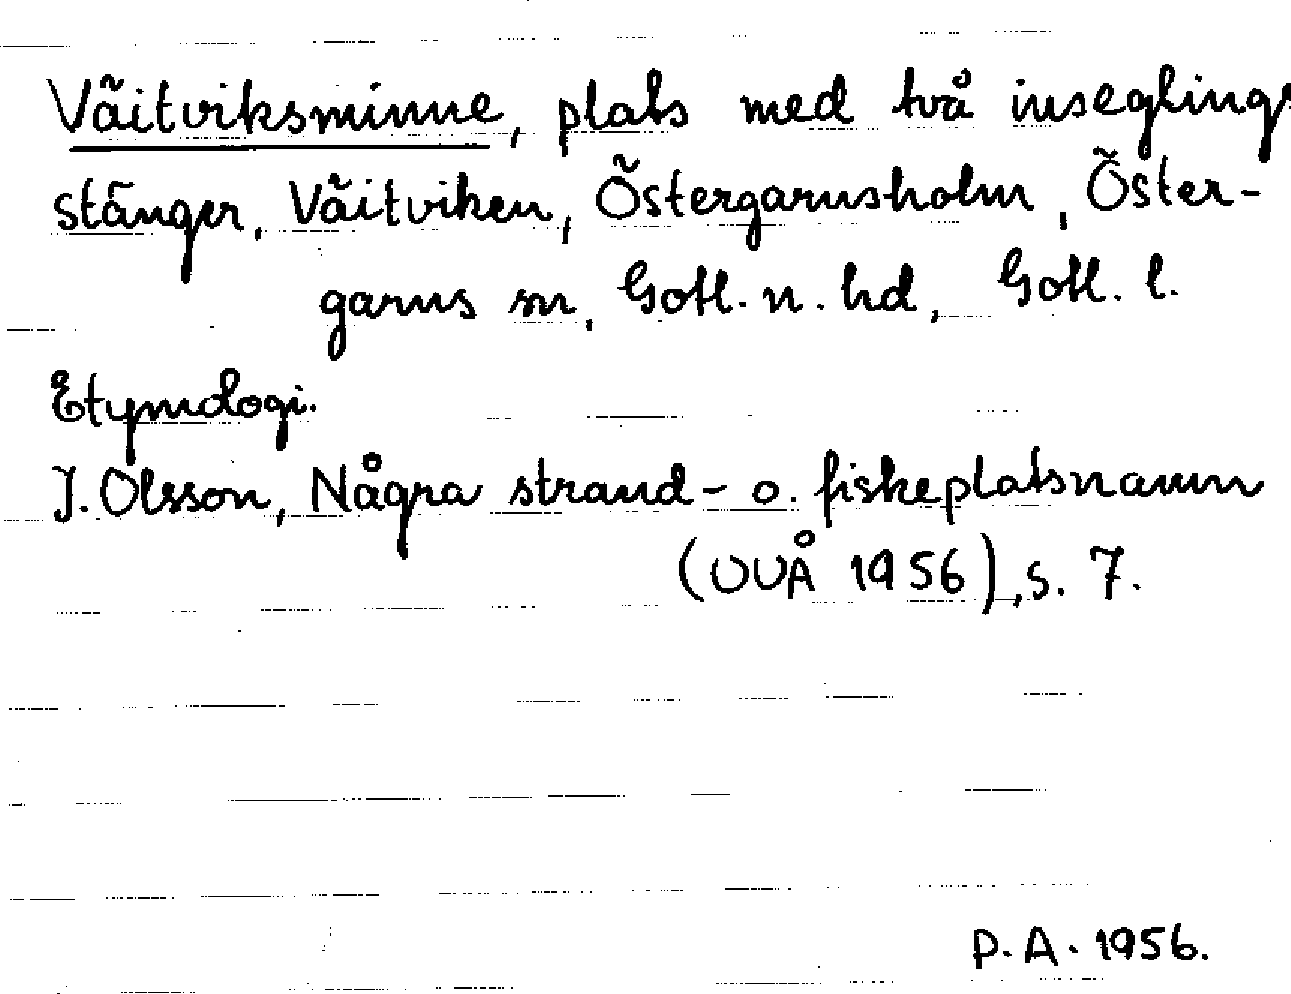 Väitviksminne, plats med två inseglings
stänger, Väitviken, Östergarnsholm, Öster-
garns sn, Gotl. n. hd, Gotl. l.
Etymologi.
J. Olsson, Några strand- o. fiskeplatsnamn
(UUÅ 1956), s. 7.
P. A. 1956.